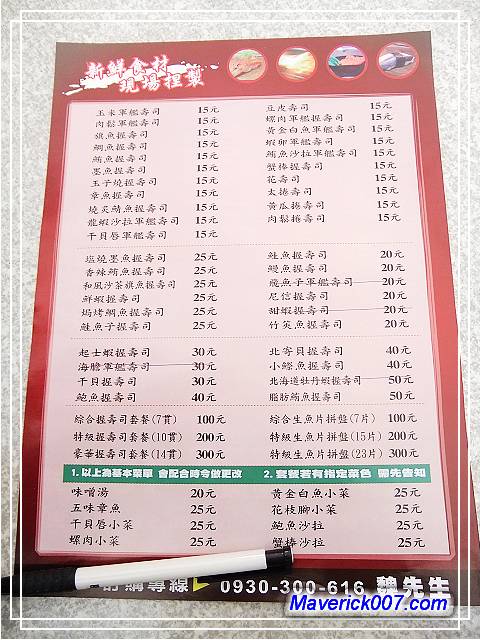 新鮮食材
現場捏製
玉米軍艦壽司 15元
肉鬆軍艦壽司 15元
旗魚握壽司 15元
鯛魚握壽司 15元
鮪魚握壽司 15元
墨魚握壽司 15元
玉子燒握壽司 15元
章魚握壽司 15元
燒炙鯖魚握壽司 15元
龍蝦沙拉軍艦壽司 15元
干貝唇軍艦壽司 15元
豆皮壽司 15元
螺肉軍艦壽司 15元
黃金白魚軍艦壽司 15元
蝦卵軍艦壽司 15元
鮪魚沙拉軍艦壽司 15元
蟹棒握壽司 15元
花壽司 15元
太捲壽司 15元
黃瓜捲壽司 15元
肉鬆捲壽司 15元
塩燒墨魚握壽司 25元
香辣鮪魚握壽司 25元
和風沙茶旗魚握壽司 25元
鮮蝦握壽司 25元
焗烤鯛魚握壽司 25元
鮭魚子握壽司 25元
鮭魚握壽司 20元
鰻魚握壽司 20元
飛魚子軍艦壽司 20元
尼信握壽司 20元
甜蝦握壽司 20元
竹筴魚握壽司 20元
起士蝦握壽司 30元
海膽軍艦壽司 30元
干貝握壽司 30元
鮑魚握壽司 40元
北寄貝握壽司 40元
小鰶魚握壽司 40元
北海道牡丹蝦握壽司 50元
脂肪鮪魚握壽司 50元
綜合握壽司套餐(7貫) 100元
特級握壽司套餐(10貫) 200元
豪華握壽司套餐(14貫) 300元
綜合生魚片拼盤(7片) 100元
特級生魚片拼盤(15片) 200元
特級生魚片拼盤(23片) 300元
1. 以上為基本菜單 會配合時令做更改 2. 套餐若有指定菜色 需先告知
味噌湯 20元
五味章魚 25元
干貝唇小菜 25元
螺肉小菜 25元
黃金白魚小菜 25元
花枝腳小菜 25元
鮑魚沙拉 25元
蟹棒沙拉 25元
訂購專線 0930-300-616 魏先生
Maverick007.com